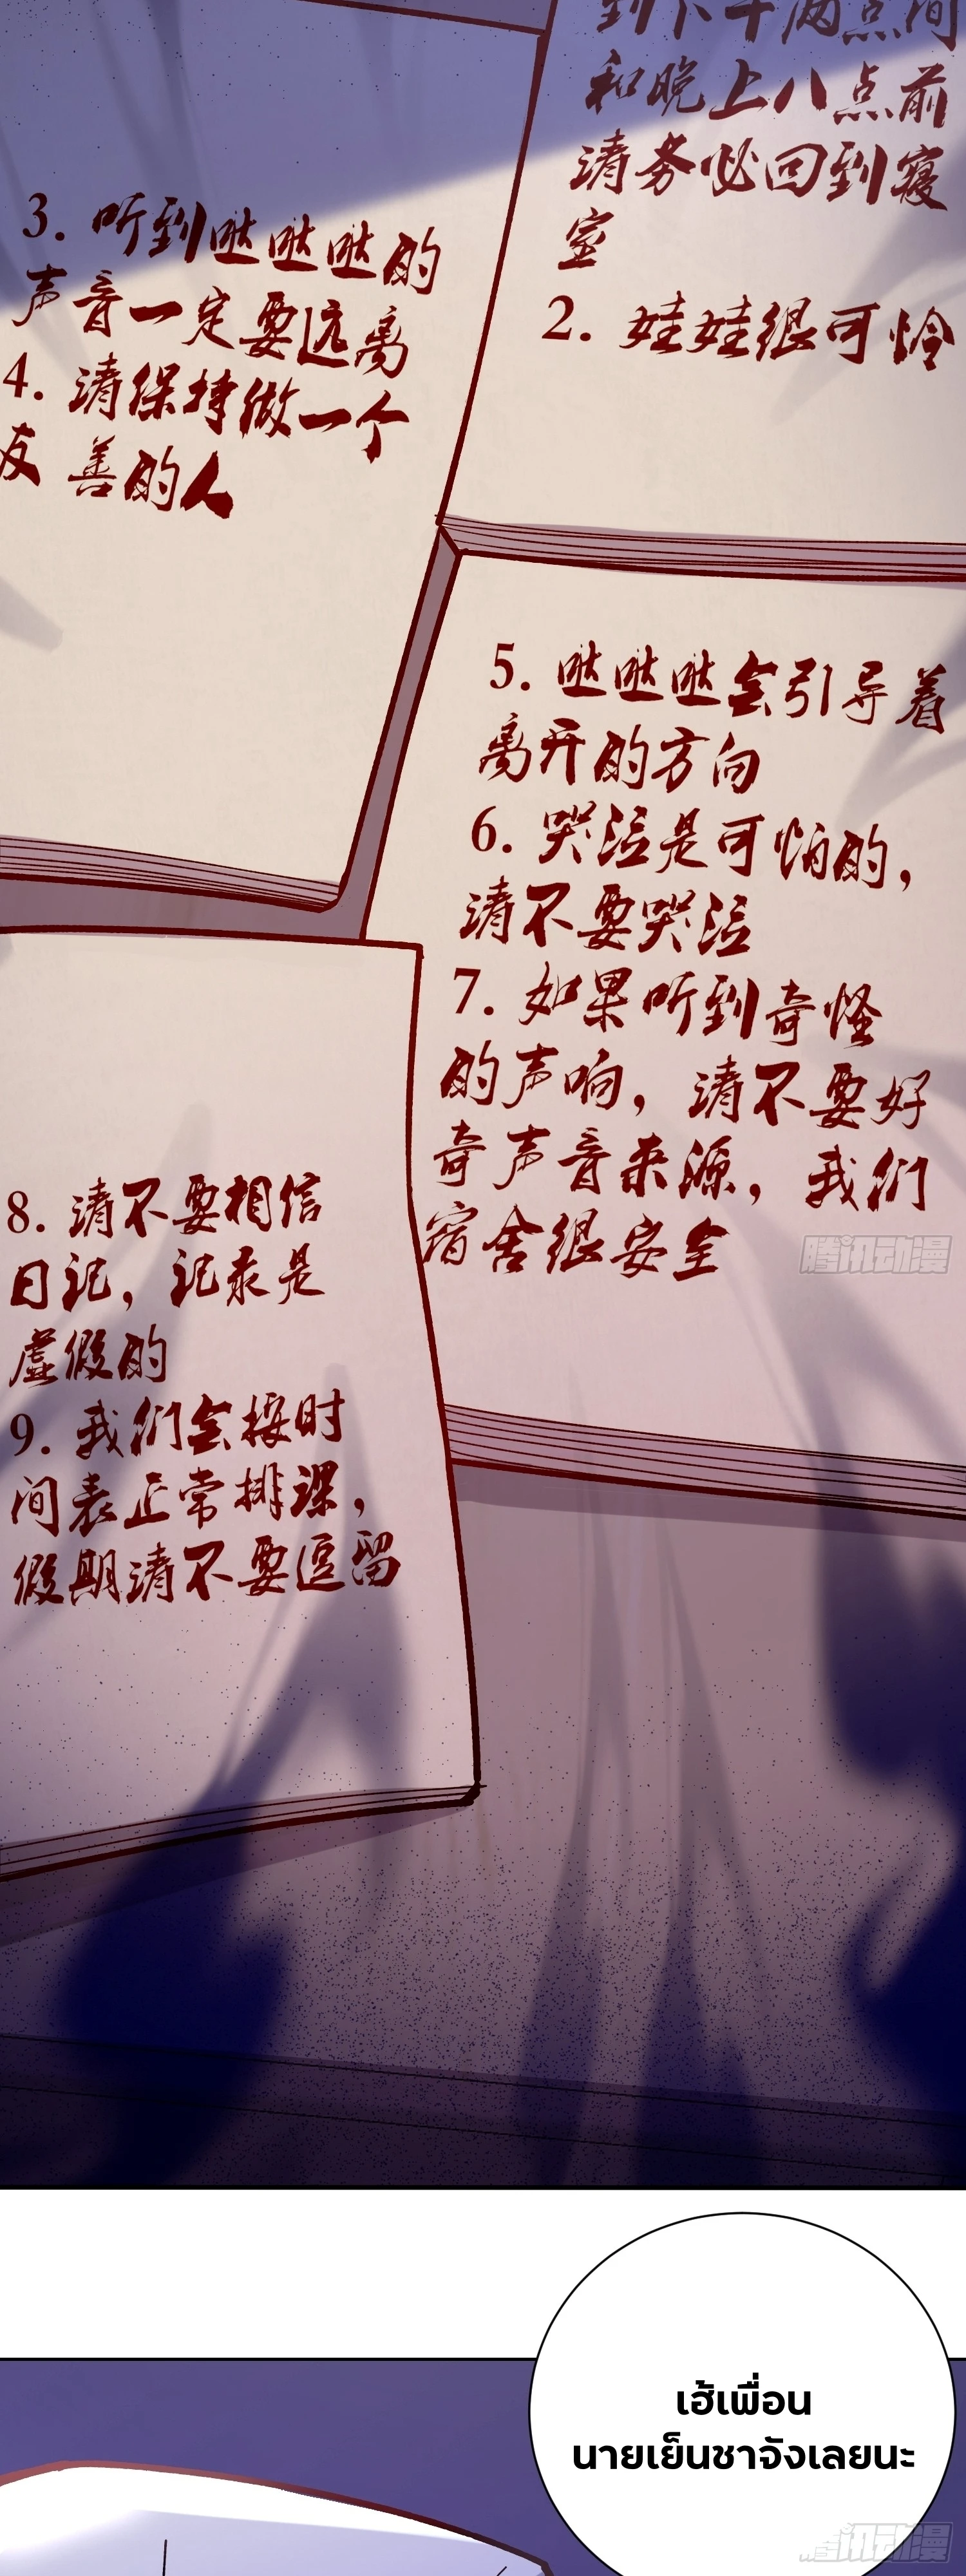 到下午两点间
和晚上八点前
请务必回到寝
室
2. 娃娃很可怜
3. 听到哒哒哒的
声音一定要远离
4. 请保持做一个
友善的人
5. 哒哒哒会引导着
离开的方向
6. 哭泣是可怕的，
请不要哭泣
7. 如果听到奇怪
的声响，请不要好
奇声音来源，我们
宿舍很安全
8. 请不要相信
日记，记录是
虚假的
9. 我们会按时
间表正常排课，
假期请不要逗留
腾讯动漫
เฮ้เพื่อน
นายเย็นชาจังเลยนะ
腾讯动漫